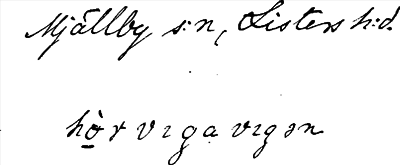 Mjällby s:n, Listers h:d.
hò̱r vıga vıgən